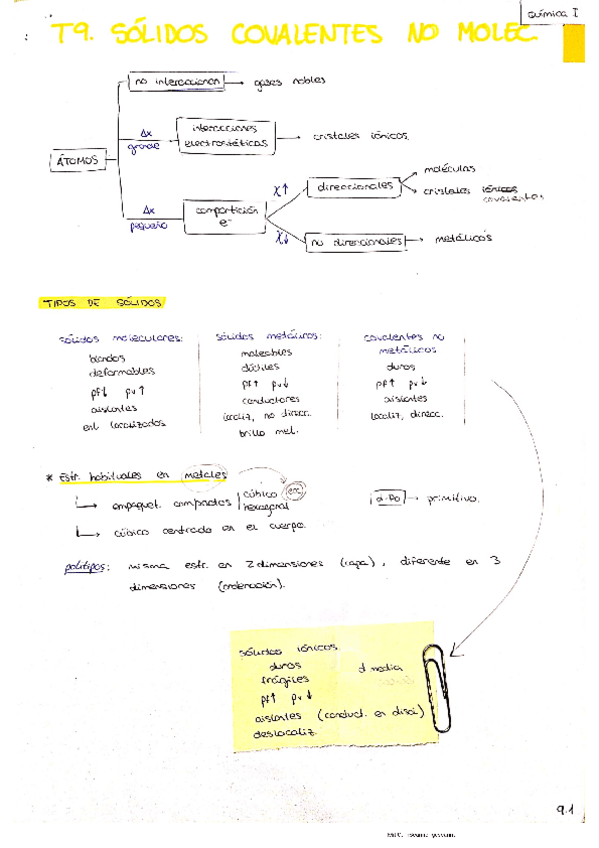 Química I
T9. SÓLIDOS COVALENTES NO MOLEC.
no interaccionan → gases nobles
ÁTOMOS
Δx grande
interacciones electrostáticas → cristales iónicos
Δx pequeña
compartición e⁻
χ↑ direccionales
moléculas
cristales iónicos covalentes
χ↓ no direccionales → metálicos
TIPOS DE SÓLIDOS
sólidos moleculares:
blandos
deformables
pf↓ pv↑
aislantes
enl. localizados
sólidos metálicos:
maleables
dúctiles
pf↑ pv↓
conductores
localiz, no direcc.
brillo met.
covalentes no metálicos
duros
pf↑ pv↓
aislantes
localiz, direcc.
* Estr. habituales en metales
empaquet. compactos | cúbico
hexagonal
α-Po → primitivo.
cúbico centrado en el cuerpo.
politipos: misma estr. en 2 dimensiones (capa), diferente en 3
dimensiones (ordenación).
sólidos iónicos
duros
d media
frágiles
pf↑ pv↓
aislantes (conduct. en disol)
deslocaliz.
9.1